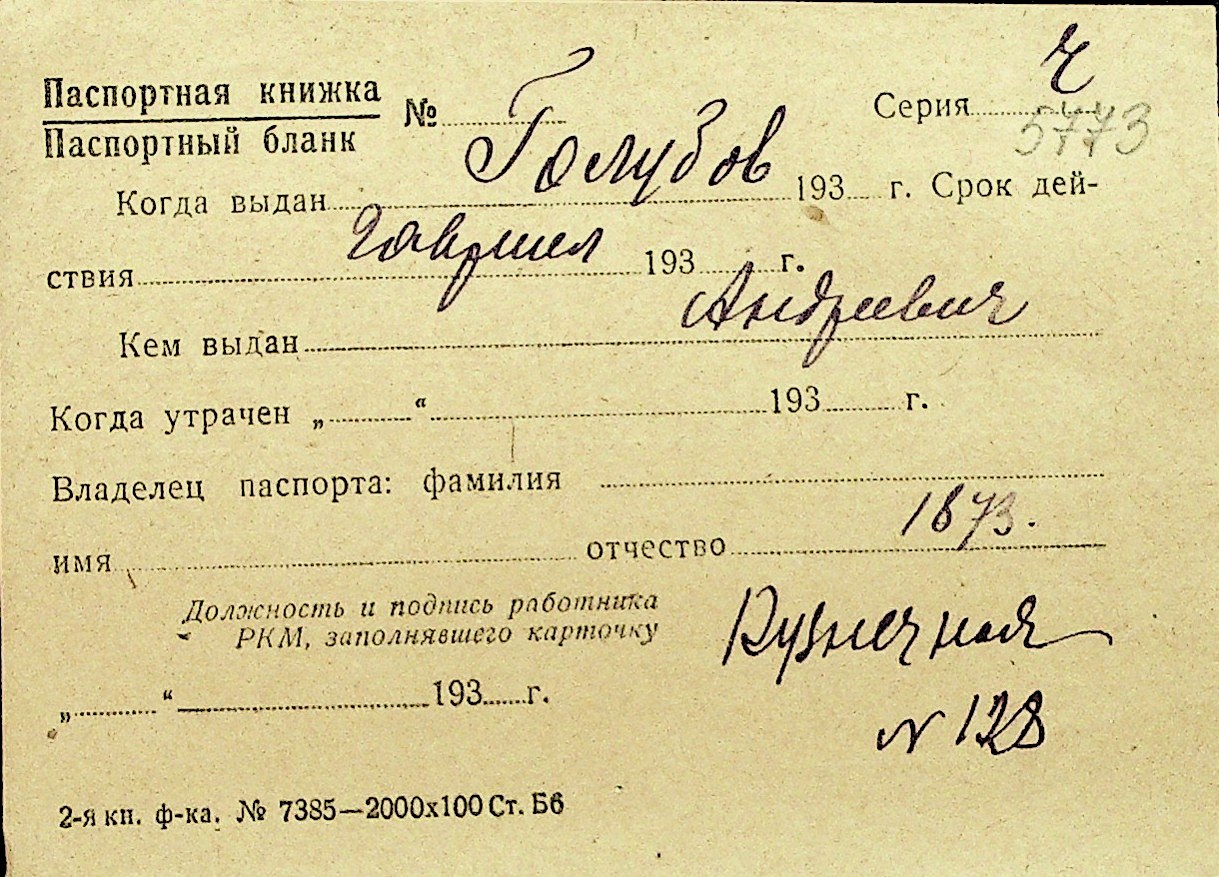 ч
Паспортная книжка
Паспортный бланк
№ Голубов Серия 5773
Когда выдан 193 г. Срок дей-
ствия Гавриил 193 г.
Андреевич
Кем выдан
Когда утрачен „ “ 193 г.
Владелец паспорта: фамилия
1873.
имя отчество
Должность и подпись работника
РКМ, заполнявшего карточку
Кузнечная
„ “ 193 г.
N 128
2-я кн. ф-ка. № 7385—2000х100 Ст. Б6